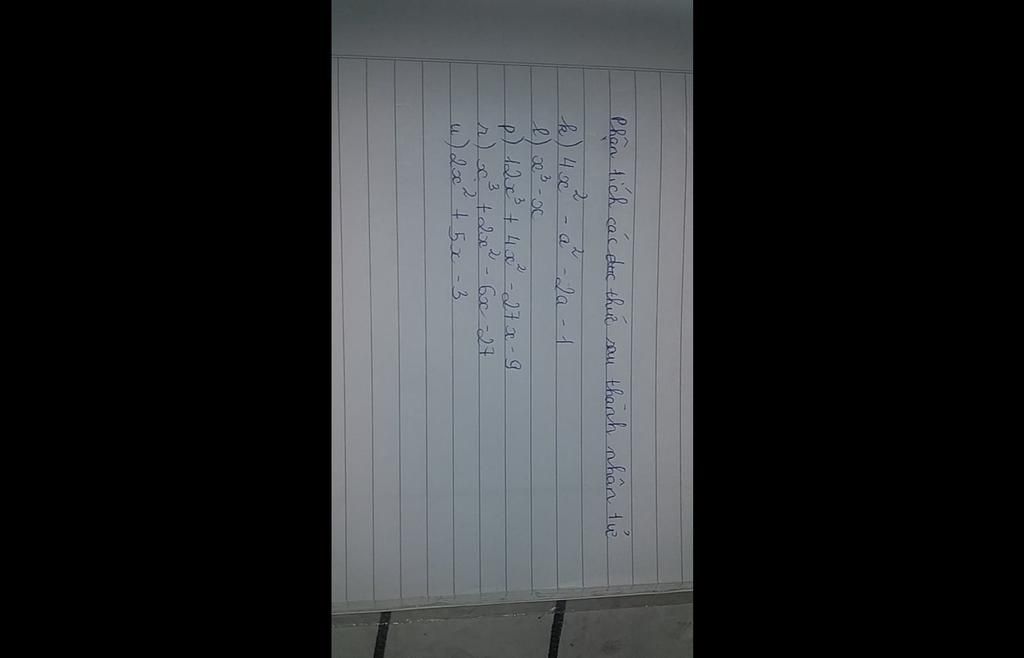 Phân tích các đa thức sau thành nhân tử
k) 4x² - a² - 2a - 1
l) x³ - x
p) 12x³ + 4x² - 27x - 9
r) x³ + 2x² - 6x - 27
u) 2x² + 5x - 3